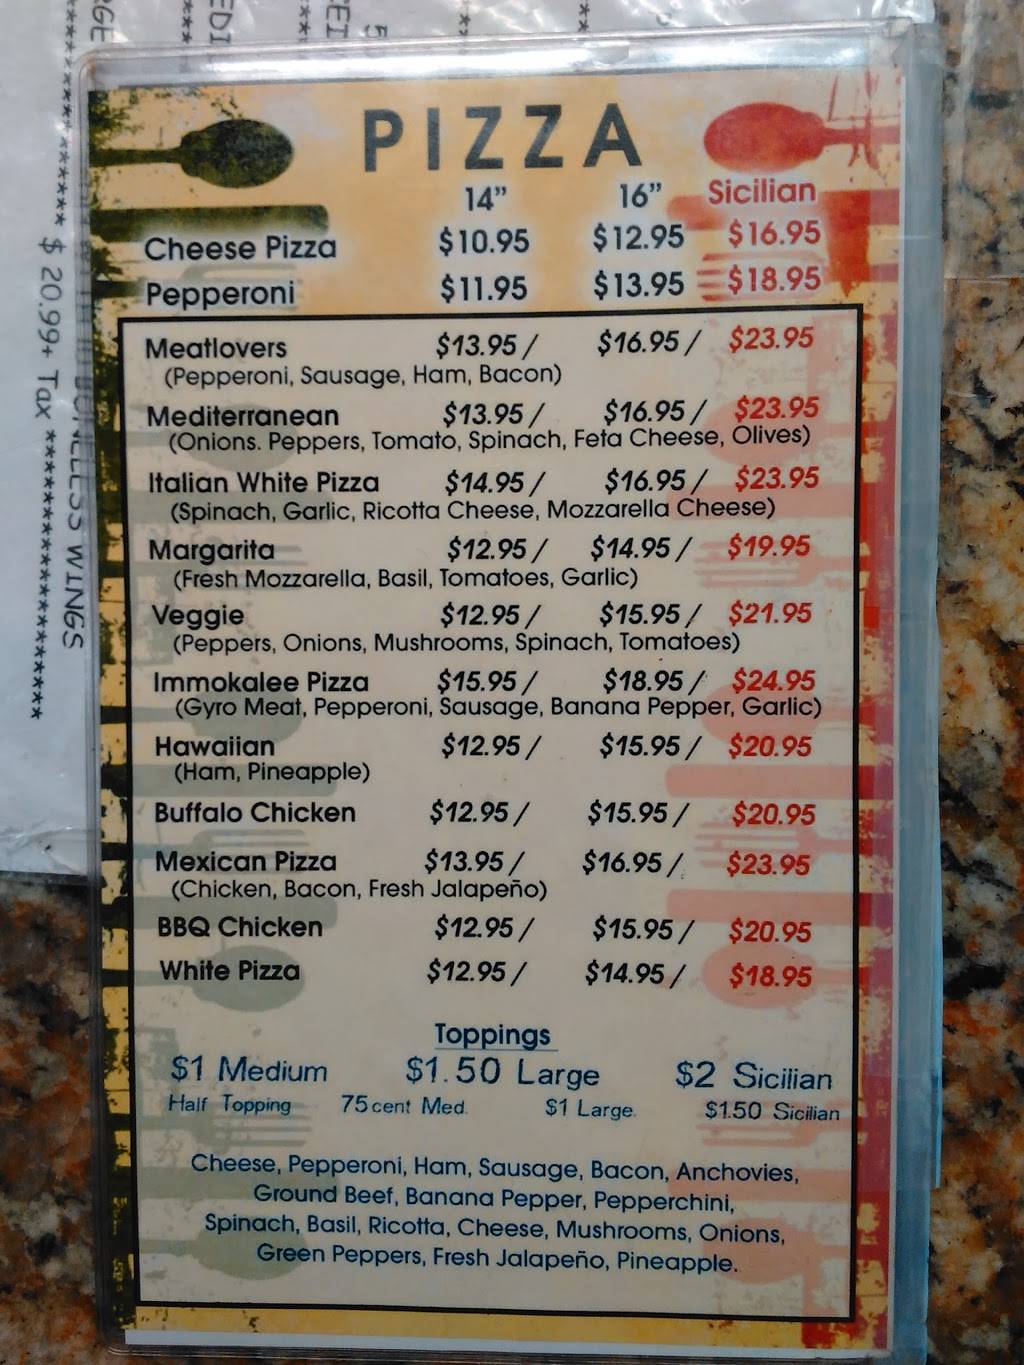 PIZZA
14” 16” Sicilian
Cheese Pizza $10.95 $12.95 $16.95
Pepperoni $11.95 $13.95 $18.95
Meatlovers $13.95 / $16.95 / $23.95
(Pepperoni, Sausage, Ham, Bacon)
Mediterranean $13.95 / $16.95 / $23.95
(Onions. Peppers, Tomato, Spinach, Feta Cheese, Olives)
Italian White Pizza $14.95 / $16.95 / $23.95
(Spinach, Garlic, Ricotta Cheese, Mozzarella Cheese)
Margarita $12.95 / $14.95 / $19.95
(Fresh Mozzarella, Basil, Tomatoes, Garlic)
Veggie $12.95 / $15.95 / $21.95
(Peppers, Onions, Mushrooms, Spinach, Tomatoes)
Immokalee Pizza $15.95 / $18.95 / $24.95
(Gyro Meat, Pepperoni, Sausage, Banana Pepper, Garlic)
Hawaiian $12.95 / $15.95 / $20.95
(Ham, Pineapple)
Buffalo Chicken $12.95 / $15.95 / $20.95
Mexican Pizza $13.95 / $16.95 / $23.95
(Chicken, Bacon, Fresh Jalapeño)
BBQ Chicken $12.95 / $15.95 / $20.95
White Pizza $12.95 / $14.95 / $18.95
Toppings
$1 Medium $1.50 Large $2 Sicilian
Half Topping 75 cent Med. $1 Large. $1.50 Sicilian
Cheese, Pepperoni, Ham, Sausage, Bacon, Anchovies,
Ground Beef, Banana Pepper, Pepperchini,
Spinach, Basil, Ricotta, Cheese, Mushrooms, Onions,
Green Peppers, Fresh Jalapeño, Pineapple.
WINGS
$ 20.99+ Tax